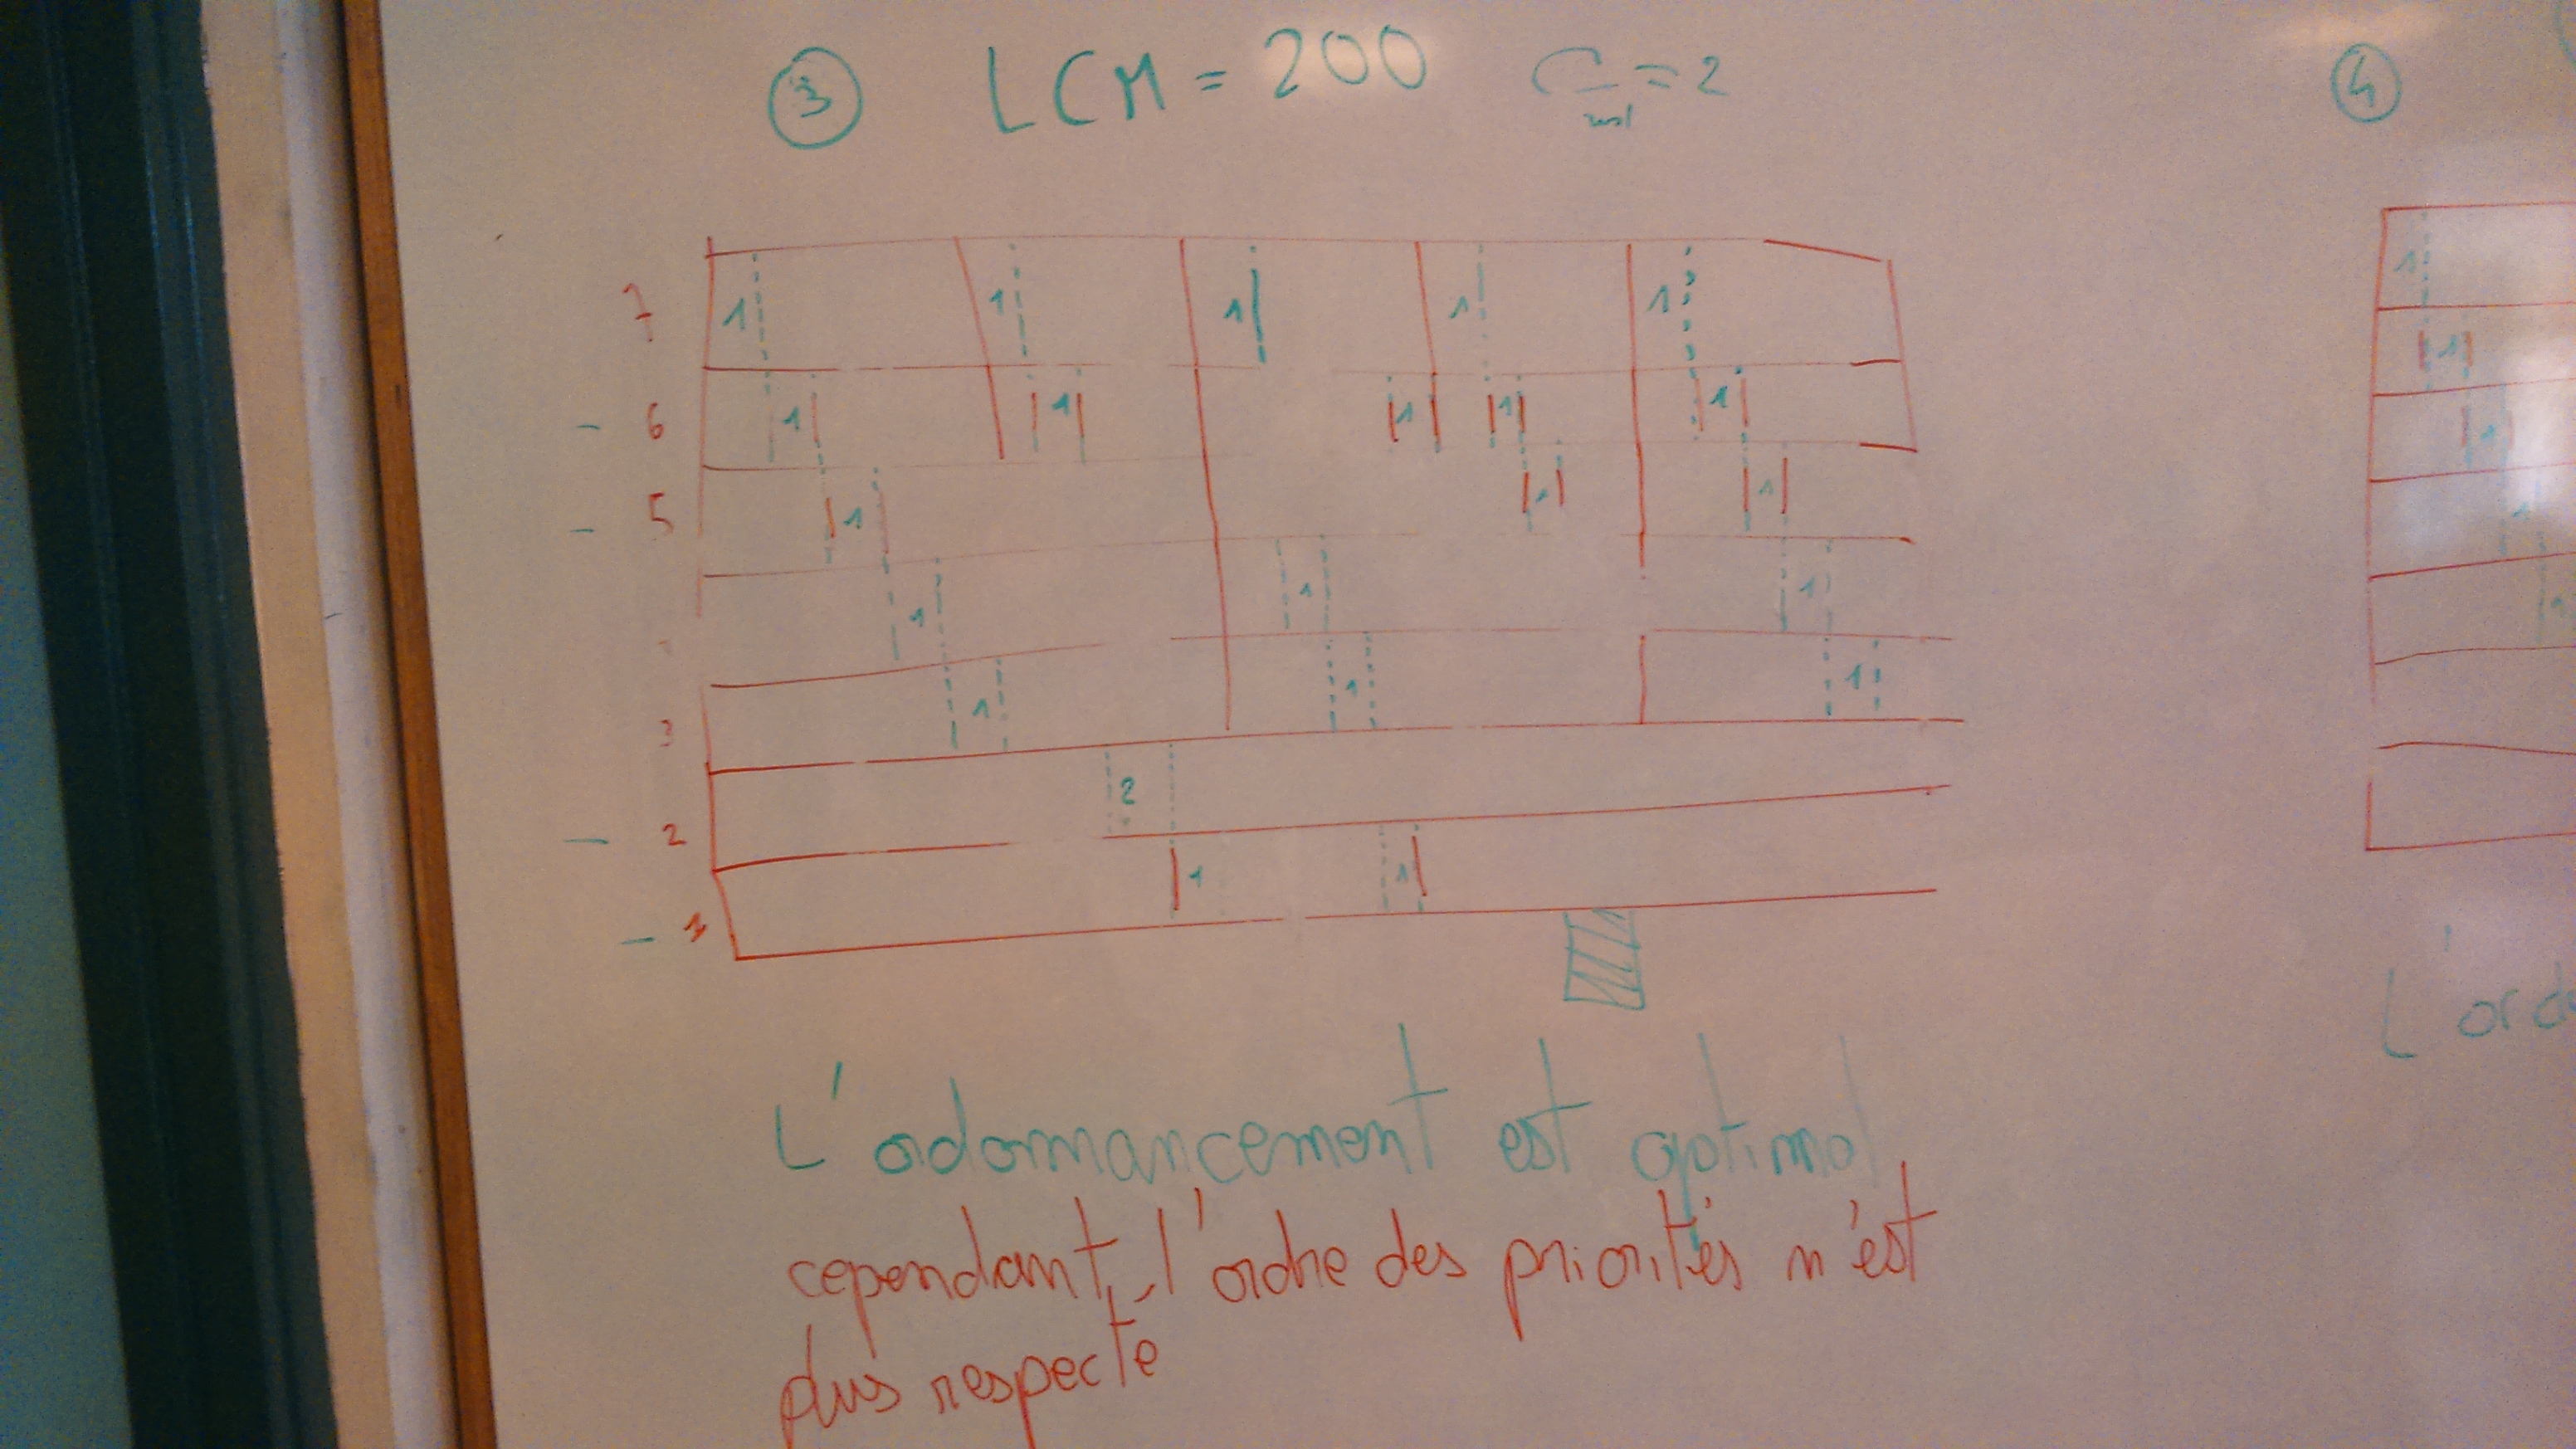 ③ LCM = 200
④
7 1 1 1 1 1 1
6 1 1 1 1 1
5 1 1 1
1 1 1
3 1 1 1
2 2
1 1 1
L'ordonnancement est optimal
cependant, l'ordre des priorités n'est
plus respecté
L'ord